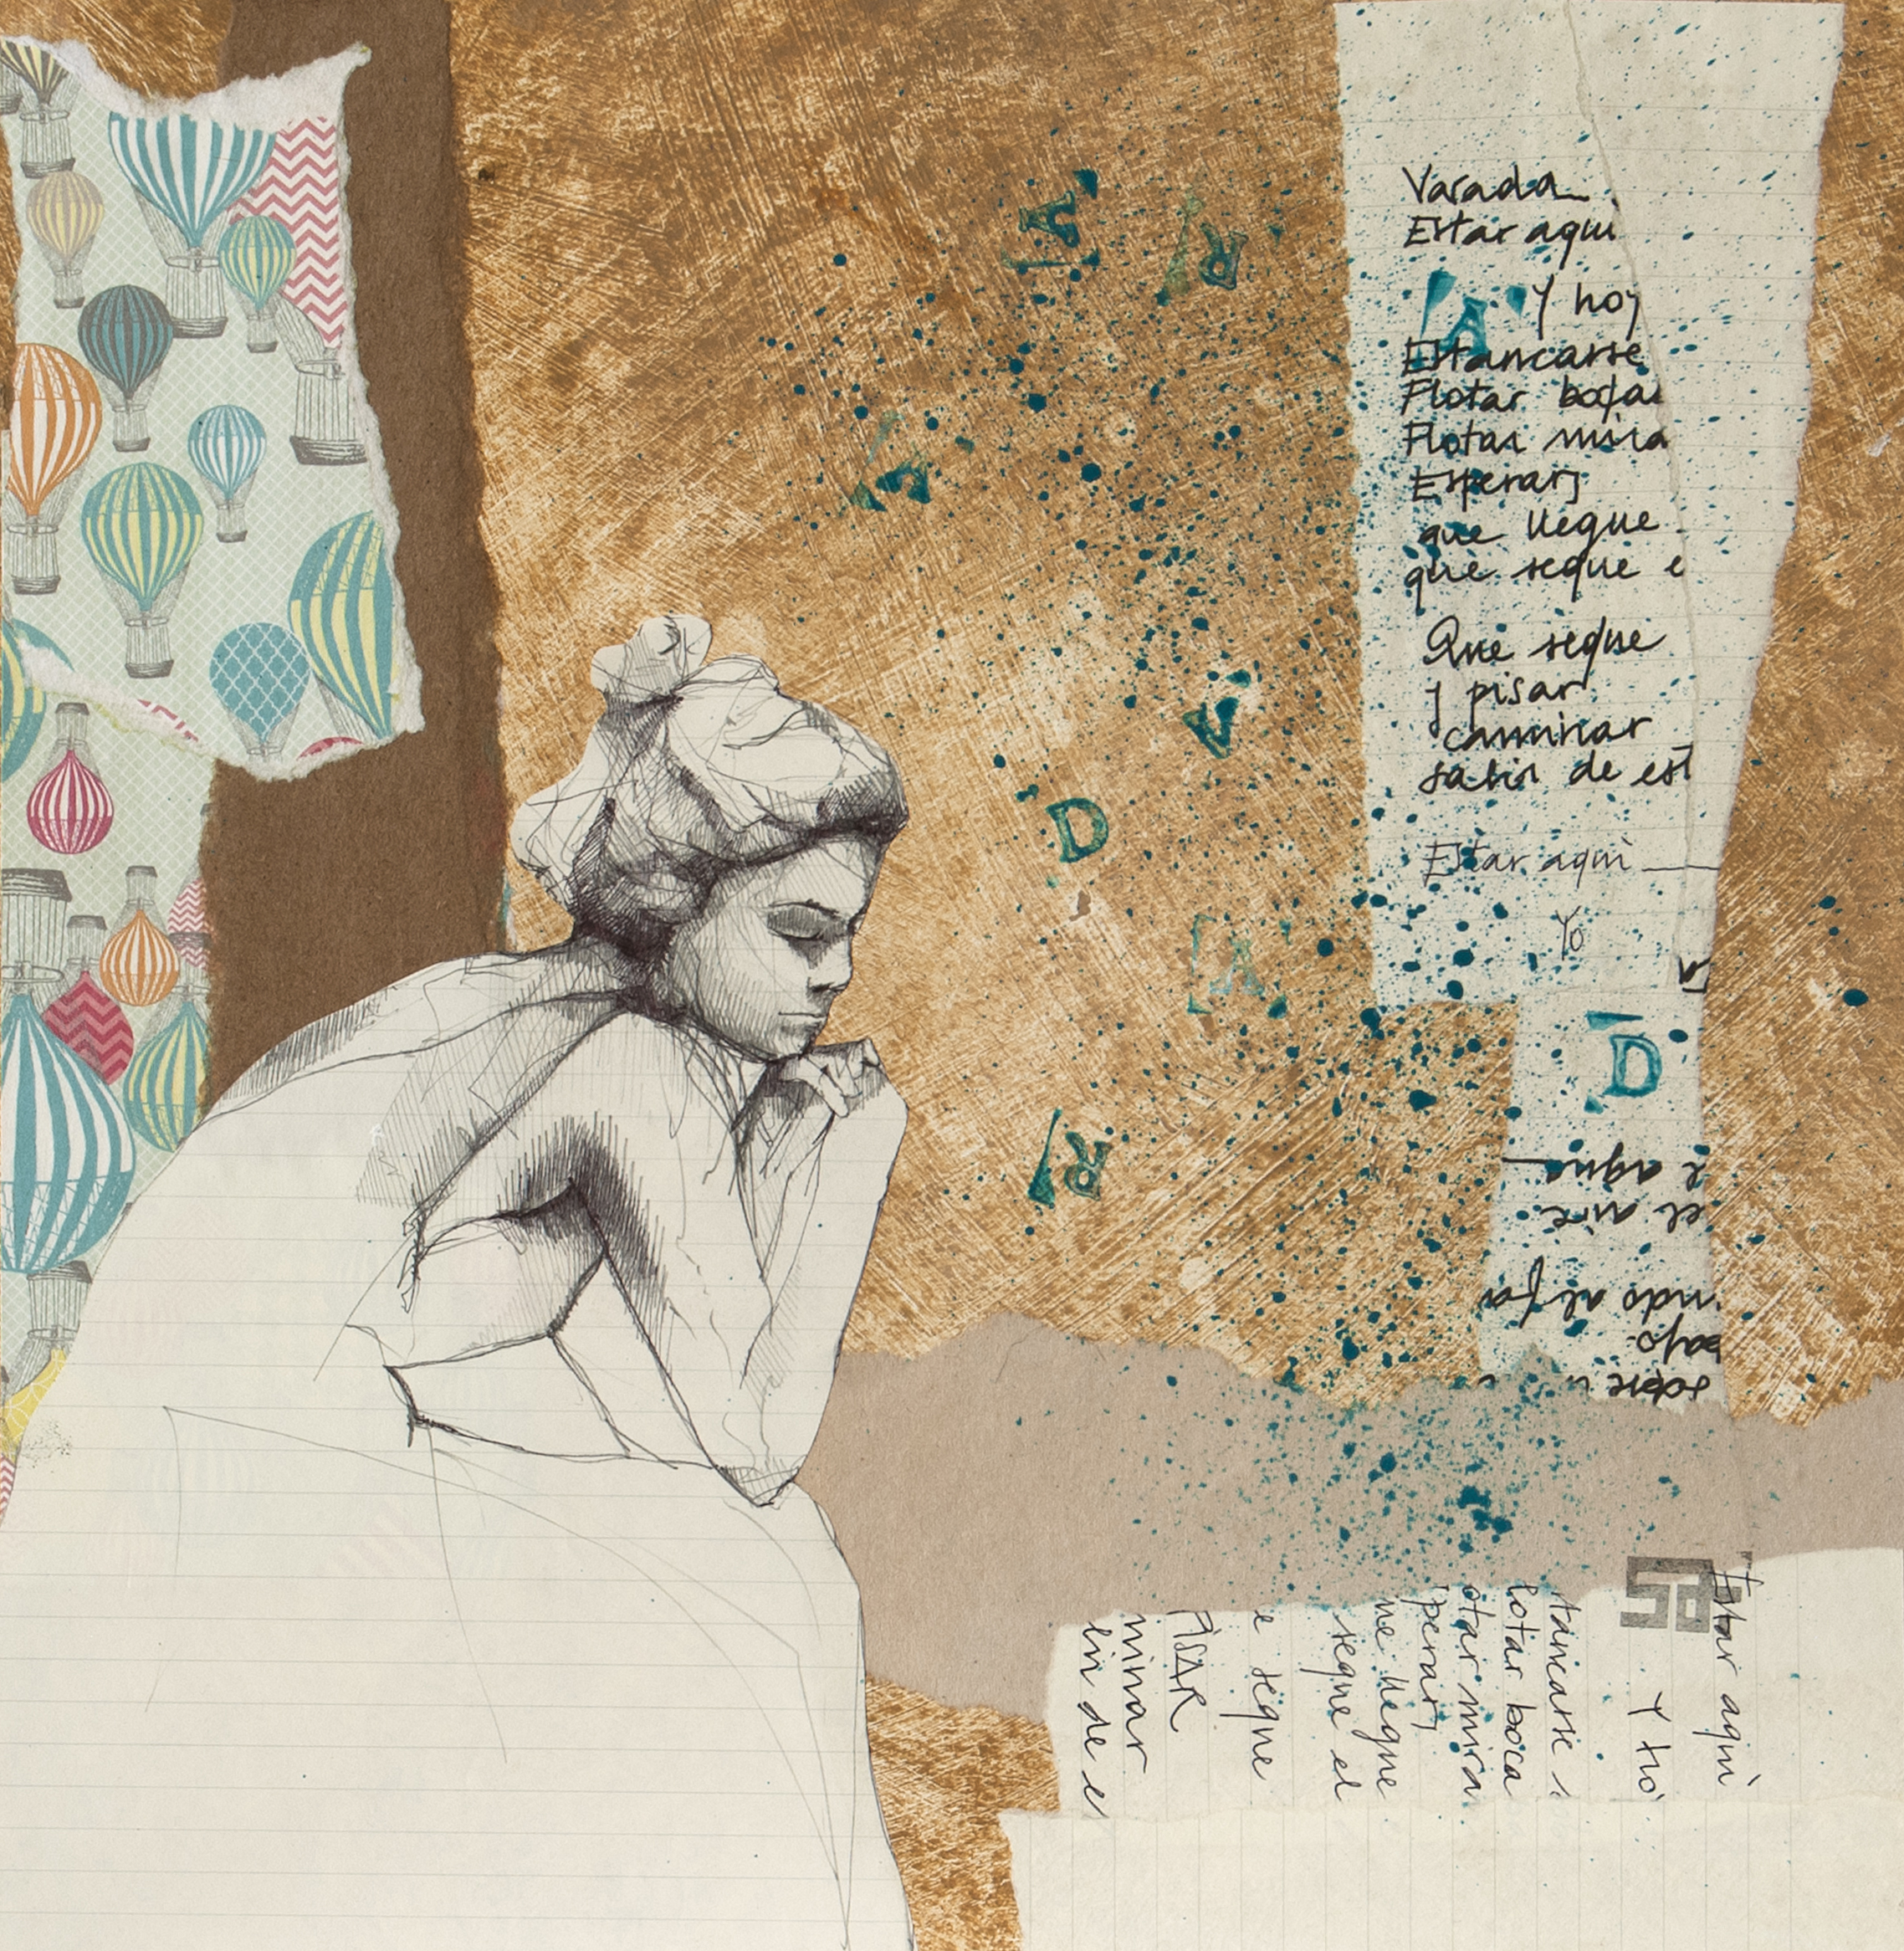 Varada
Estar aqui
A
y hoy
Estancarse
Flotar boca
Flotar mira
Esperar,
que llegue
que seque e
Que seque
y pisar
caminar
salir de est
Estar aquì
Yo
V
A
R
A
V
D
A
R
D
e agua
el aire
ndo al fon
bajo
sobre
Estar aquì
Y ho
tancarse
lotar boca
otar mira
perar,
ue llegue
seque el
e seque
PISAR
minar
lir de e